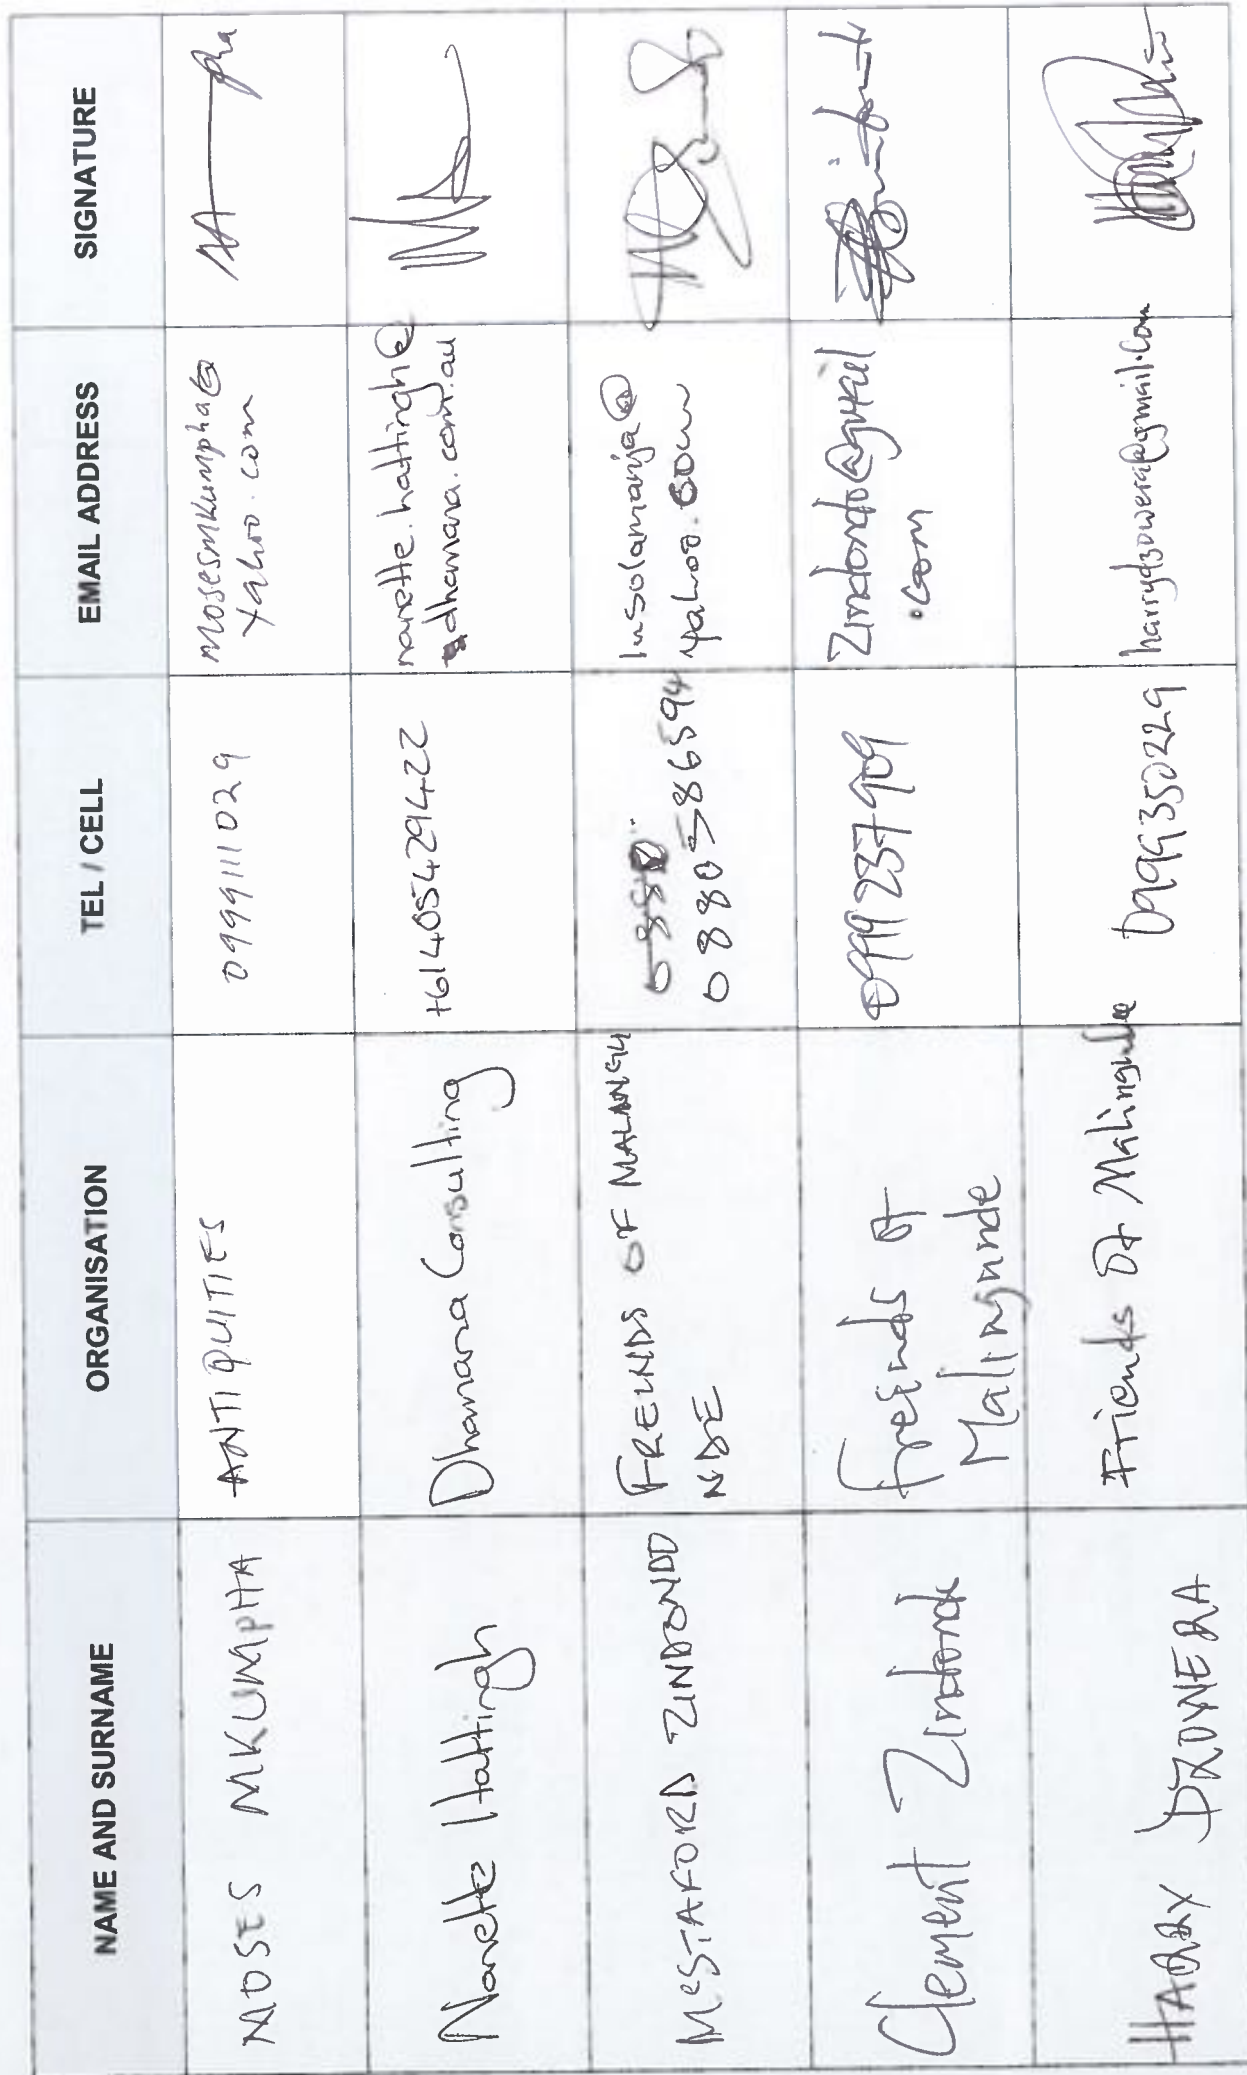 NAME AND SURNAME
ORGANISATION
TEL / CELL
EMAIL ADDRESS
SIGNATURE
MOSES MKUMPHA
ANTIQUITIES
0999111029
mosesmkumpha@
yahoo.com
Nanette Hattingh
Dhamana Consulting
+61405429422
nanette.hattingh@
dhamana.com.au
MESTAFORD ZINDONDO
FREINDS OF MALINGU
NDE
0880586594
yahoo.com
Clement Zindondo
Freinds of
Malingunde
0999237909
Zindondo@gmail
.com
HARRY DZOWERA
Friends Of Malingunde
0999350229
harrydzowera@gmail.com